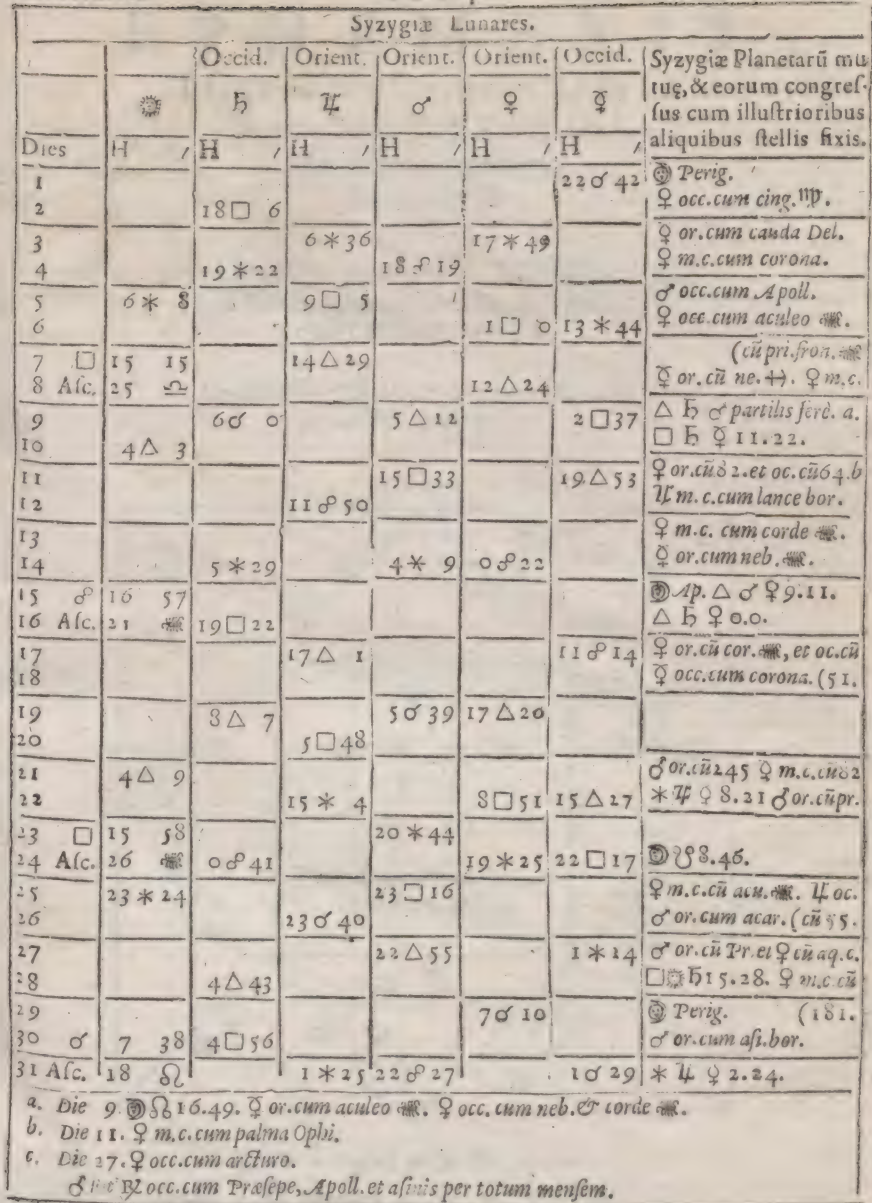 Syzygiæ Lunares.
Occid. Orient. Orient. Orient. Occid. Syzygiæ Planetarũ mu
☉ ♄ ♃ ♂ ♀ ☿ tuę, & eorum congreſ-
ſus cum illuſtrioribus
Dies H / H / H / H / H / H / aliquibus ſtellis fixis.
1 22 ☌ 42 ☽ Perig.
2 18 □ 6 ♀ occ.cum cing.♍.
3 6 ⚹ 36 17 ⚹ 49 ☿ or.cum cauda Del.
4 19 ⚹ 22 18 ☍ 19 ♀ m.c.cum corona.
5 6 ⚹ 8 9 □ 5 ♂ occ.cum Apoll.
6 1 □ 0 13 ⚹ 44 ♀ occ.cum aculeo ♏.
7 □ 15 15 14 △ 29 (cũ pri.fron.♏
8 Aſc. 25 ♎ 12 △ 24 ☿ or.cũ ne.♐. ♀ m.c.
9 6 ☌ 0 5 △ 12 2 □ 37 △ ♄ ♂ partilis ferè. a.
10 4 △ 3 □ ♄ ☿ 11.22.
11 15 □ 33 19 △ 53 ♀ or.cũ 82.et oc.cũ 64.b
12 11 ☍ 50 ♃ m.c.cum lance bor.
13 ♀ m.c. cum corde ♏.
14 5 ⚹ 29 4 ⚹ 9 0 ☍ 22 ☿ or.cum neb.♏.
15 ☍ 16 57 ☽ Ap. △ ♂ ♀ 9.11.
16 Aſc. 21 ♏ 19 □ 22 △ ♄ ♀ 0.0.
17 17 △ 1 11 ☍ 14 ♀ or.cũ cor.♏, et oc.cũ
18 ☿ occ.cum corona. (51.
19 8 △ 7 5 ☌ 39 17 △ 20
20 5 □ 48
21 4 △ 9 ♂ or.cũ 245 ♀ m.c.cũ 82
22 15 ⚹ 4 8 □ 51 15 △ 27 ⚹ ♃ ♀ 8.21 ♂ or.cũ pr.
23 □ 15 58 20 ⚹ 44
24 Aſc. 26 ♏ 0 ☍ 41 19 ⚹ 25 22 □ 17 ☽ ☋ 8.46.
25 23 ⚹ 24 23 □ 16 ♀ m.c.cũ acu.♏. ♃ oc.
26 23 ☌ 40 ♂ or.cum acar. (cũ 55.
27 22 △ 55 1 ⚹ 24 ♂ or.cũ Pr.et ♀ cũ aq.c.
28 4 △ 43 □ ☉ ♄ 15.28. ♀ m.c cũ
29 7 ☌ 10 ☽ Perig. (181.
30 ☌ 7 38 4 □ 56 ♂ or.cum aſi.bor.
31 Aſc. 18 ♌ 1 ⚹ 25 22 ☍ 27 1 ☌ 29 ⚹ ♃ ☿ 2.24.
a. Die 9. ☽ ☊ 16.49. ☿ or.cum aculeo ♏. ♀ occ. cum neb.& corde ♏.
b. Die 11. ♀ m.c.cum palma Ophi.
c. Die 27. ♀ occ.cum arcturo.
♂ occ.cum Præſepe, Apoll. et aſinis per totum menſem.